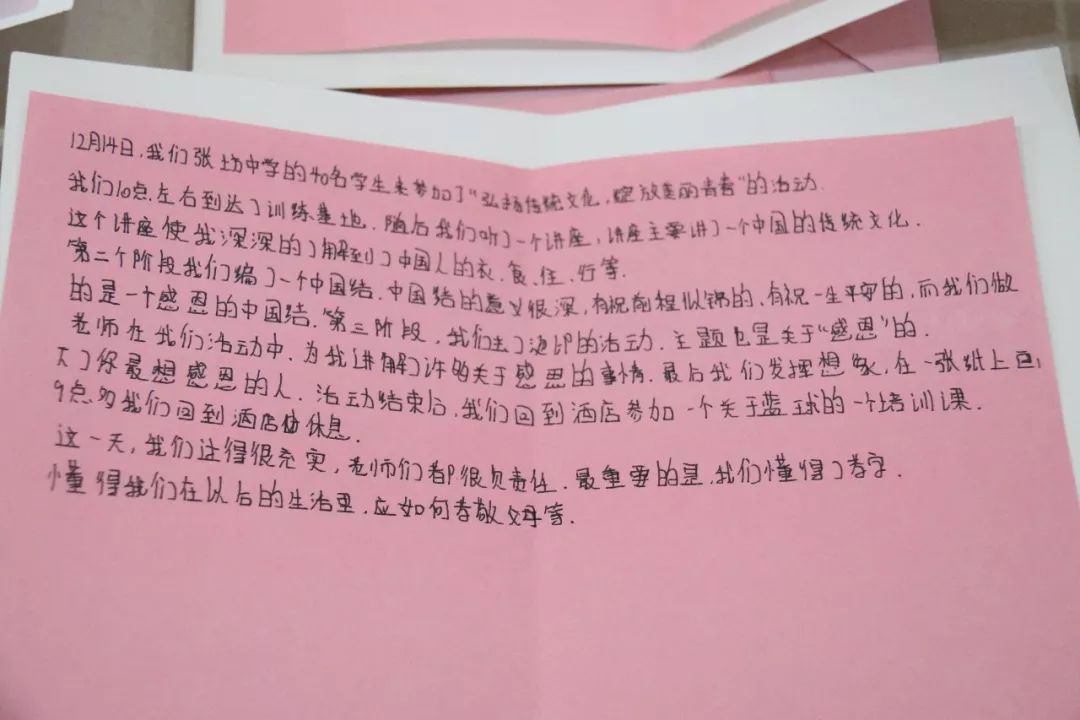 12月14日,我们张坊中学的40名学生来参加了“弘扬传统文化,绽放美丽青春”的活动.
我们10点左右到达了训练基地.随后我们听了一个讲座,讲座主要讲了一个中国的传统文化.
这个讲座使我深深的了解到了中国人的衣、食、住、行等.
第二个阶段我们编了一个中国结.中国结的意义很深,有祝前程似锦的,有祝一生平安的,而我们做
的是一个感恩的中国结.第三阶段,我们去了烫印的活动.主题也是关于“感恩”的.
老师在我们活动中,为我讲解了许多关于感恩的事情.最后我们发挥想象,在一张纸上画
了你最想感恩的人.活动结束后,我们回到酒店参加一个关于篮球的一个培训课.
9点多我们回到酒店休息.
这一天,我们过得很充实,老师们都很负责任.最重要的是,我们懂得了孝字.
懂得我们在以后的生活里,应如何孝敬父母等.